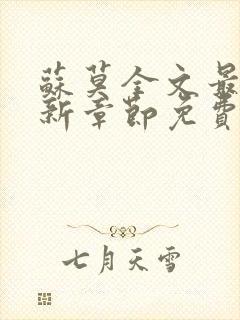 蘇莫全文最
新章節免費
七月天雪